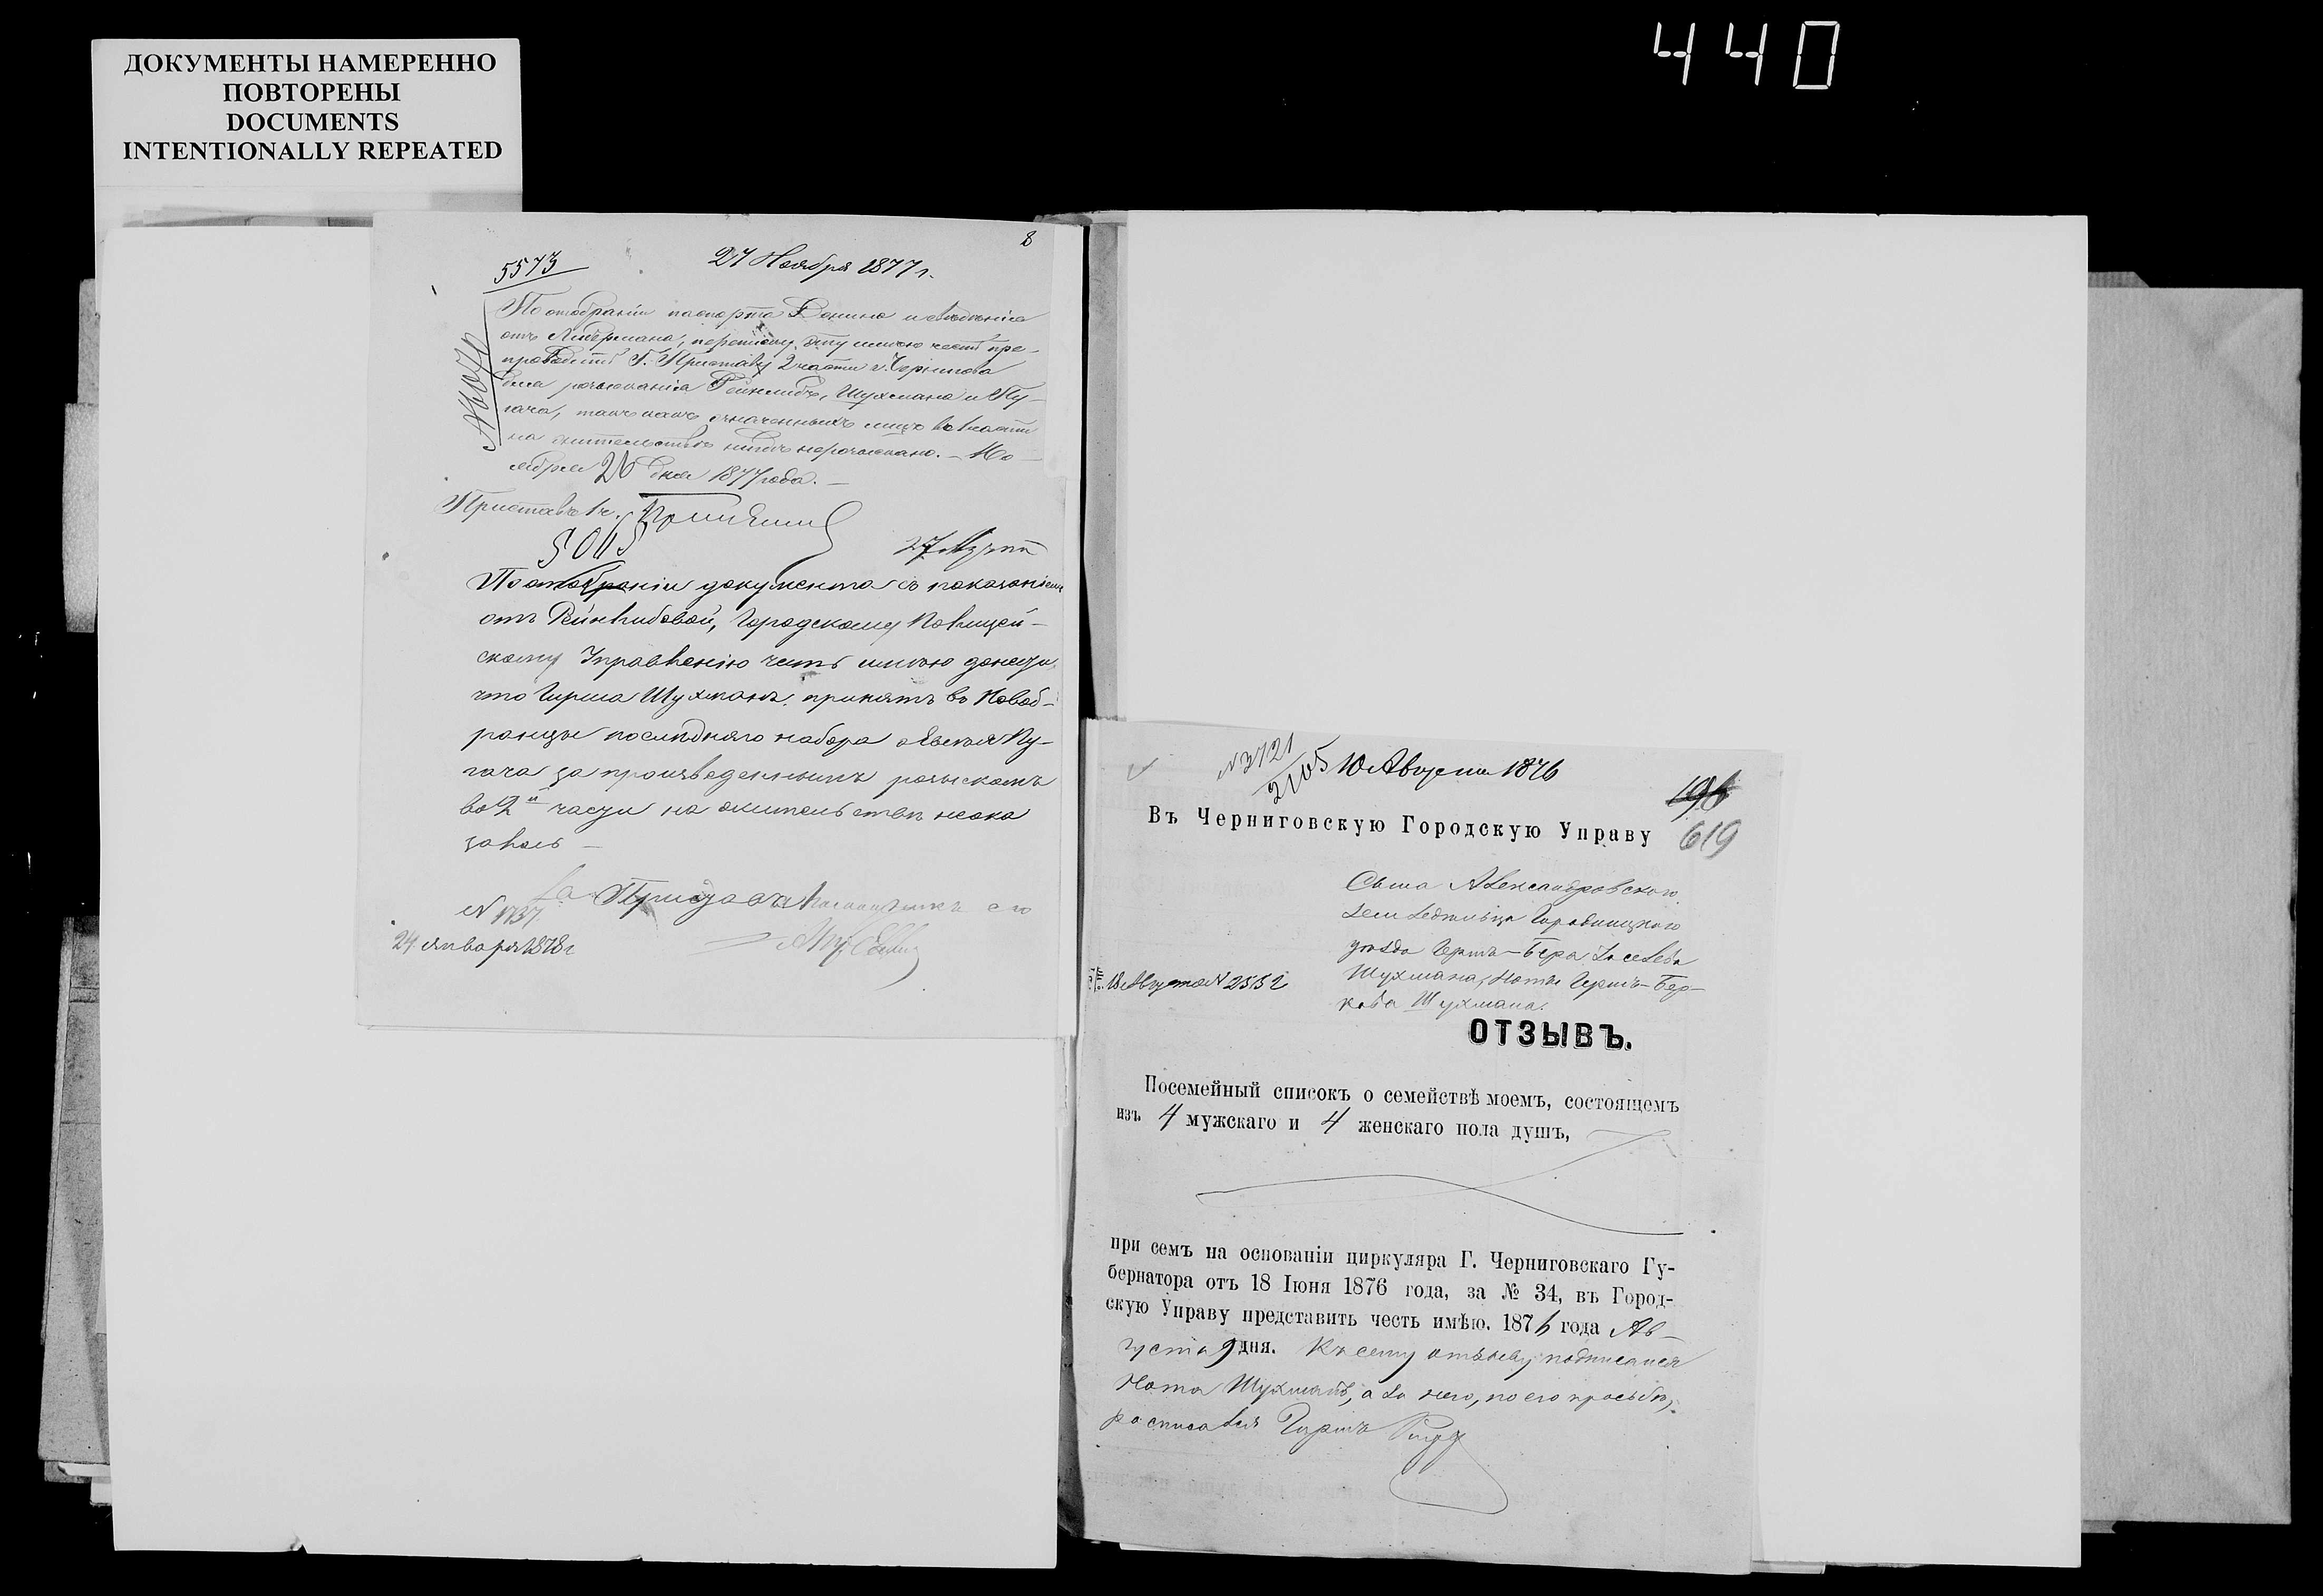 440
ДОКУМЕНТЫ НАМЕРЕННО
ПОВТОРЕНЫ
DOCUMENTS
INTENTIONALLY REPEATED
8
5573
27 Ноября 1877 г.
По отобраніи паспорта Донина и свѣдѣнія
отъ Либермана, переписку эту имѣю честь пре-
проводить Г. Приставу 2 части г. Чернигова
для розысканія Рейнлибъ, Шухмана и Пу-
гача, такъ какъ означенныхъ лицъ въ 1 части
на жительствѣ нигдѣ не розыскано. – Но-
ября 26 дня 1877 года. –
Приставъ 1 ч.
27 Марта
По отобраніи документа съ показаніемъ
отъ Рейнлибовой, Городскому Полицей-
скому Управленію честь имѣю донести
что Гирша Шухманъ, принятъ въ Новоб-
ранцы послѣдняго набора а Евсея Пу-
гача за произведеннымъ розыскомъ
во 2й части на жительствѣ неока
залось –
За Пристава Помощникъ его
N 1737
24 января 1878 г
N 3721
2105
10 Августа 1876
196
619
Въ Черниговскую Городскую Управу
Сына Александровскаго
земледѣльца Городницкаго
уѣзда Герша-Бера
Шухмана, Ноты Гершъ-Бер-
кова Шухмана.
18 Августа N 2552
ОТЗЫВЪ.
Посемейный списокъ о семействѣ моемъ, состоящемъ
изъ 4 мужскаго и 4 женскаго пола душъ,
при семъ на основаніи циркуляра Г. Черниговскаго Гу-
бернатора отъ 18 Іюня 1876 года, за № 34, въ Город-
скую Управу представить честь имѣю. 1876 года Ав-
густа 9 дня. Къ сему отзыву подписался
Нота Шухманъ, а за него, по его просьбѣ,
росписался Гиршъ